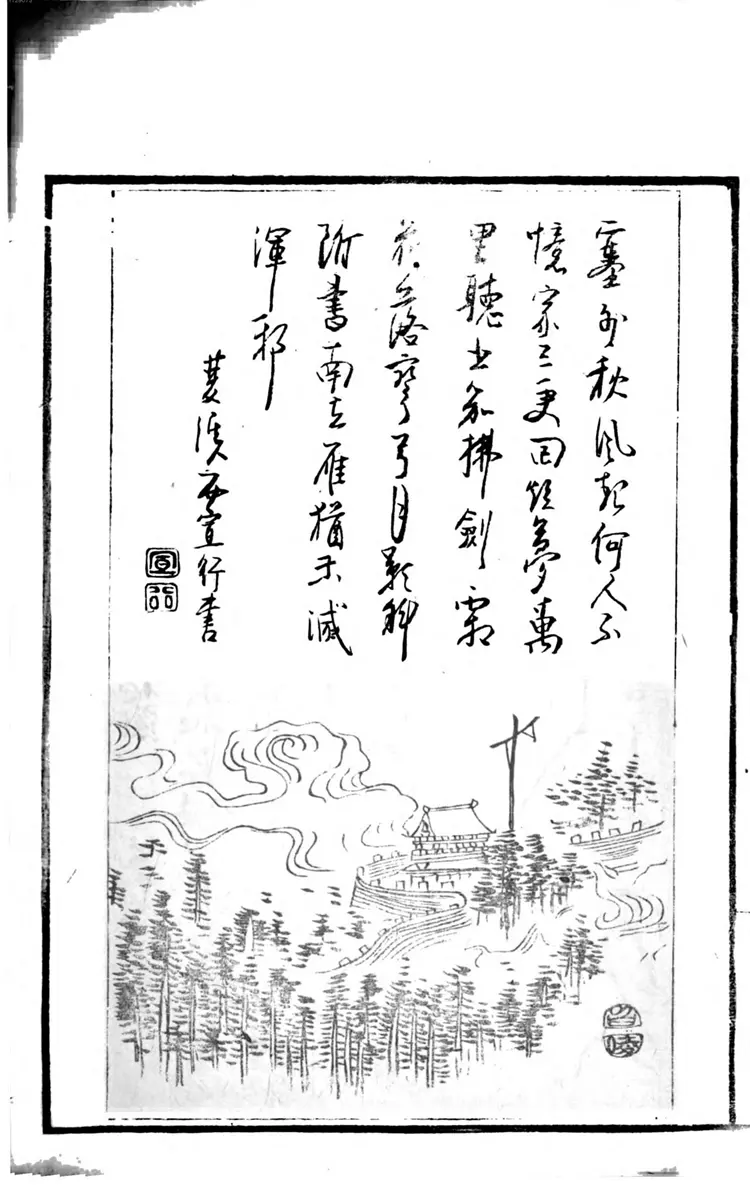 塞外秋風起何人不
憶家三更回短夢萬
里聽悲笳拂劍霜
花落彎弓月影斜
附書南去雁猶未滅
渾邪
宣行書
宣
行